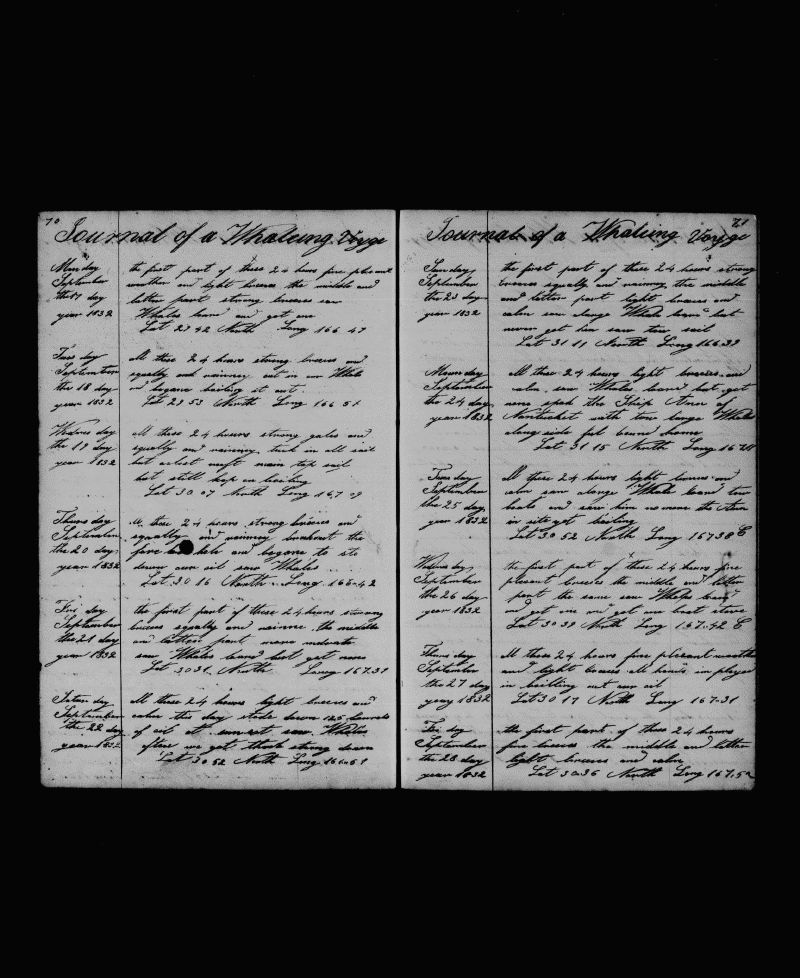 70
Journal of a Whaleing Voyge
Monday
September
the 17 day
year 1832
the first part of these 24 hours fine plesant
weather and light breezes the middle and
latter part strong breezes saw
Whales and got one
Lat 29 42 North Long 166 47
Tues day
September
the 18 day
year 1832
All these 24 hours strong breezes and
squally and raineey cut in our Whale
and began boiling it out
Lat 29 53 North Long 166 51
Wednes day
the 19 day
year 1832
All these 24 hours strong gales and
squally and raineey took in all sail
but main top sail
but still kep on boiling
Lat 30 07 North Long 167 09
Thurs day
September
the 20 day
year 1832
All these 24 hours strong breezes and
squally and raineey the
fore and begone to sto
down our oil saw Whales
Lat 30 16 North Long 166-42
Fri day
September
the 21 day
year 1832
the first part of these 24 hours strong
breezes squally and the middle
and latter part more
saw Whales but got none
Lat 30 31 North Long 167.31
Satur day
September
the 22 day
year 1832
All these 24 hours light breezes and
calm this day stode down 125
of oil at sunset saw Whales
after we got done
Lat 30 52 North Long 166-51
71
Journal of a Whaleing Voyge
Sunday
September
the 23 day
year 1832
the first part of these 24 hours strong
breezes squally and raineey the middle
and latter part light breezes and
calm saw Whale but
never got him saw sail
Lat 31 11 North Long 166.39
Moun day
September
the 24 day
year 1832
All these 24 hours light breezes and
calm saw Whales but got
none spok the Ship of
Nantucket with large Whales
along side home
Lat 31 15 North Long
Tues day
September
the 25 day
year 1832
All these 24 hours light breezes and
calm saw Whale
boats and saw him no more the
in site yet boiling
Lat 30 52 North Long 167 38 E
Wednes day
September
the 26 day
year 1832
the first part of these 24 hours fine
plesent breezes the middle and latter
part the same saw Whales
and got one and got one boat stove
Lat 30 39 North Long 167-42 E
Thurs day
September
the 27 day
year 1832
All these 24 hours fine plesant weather
and light breezes all hands
in boilling out our oil
Lat 30 17 North Long 167-31
Fri day
September
the 28 day
year 1832
the first part of these 24 hours
fine breezes the middle and latter
light breezes and calm
Lat 30.36 North Long